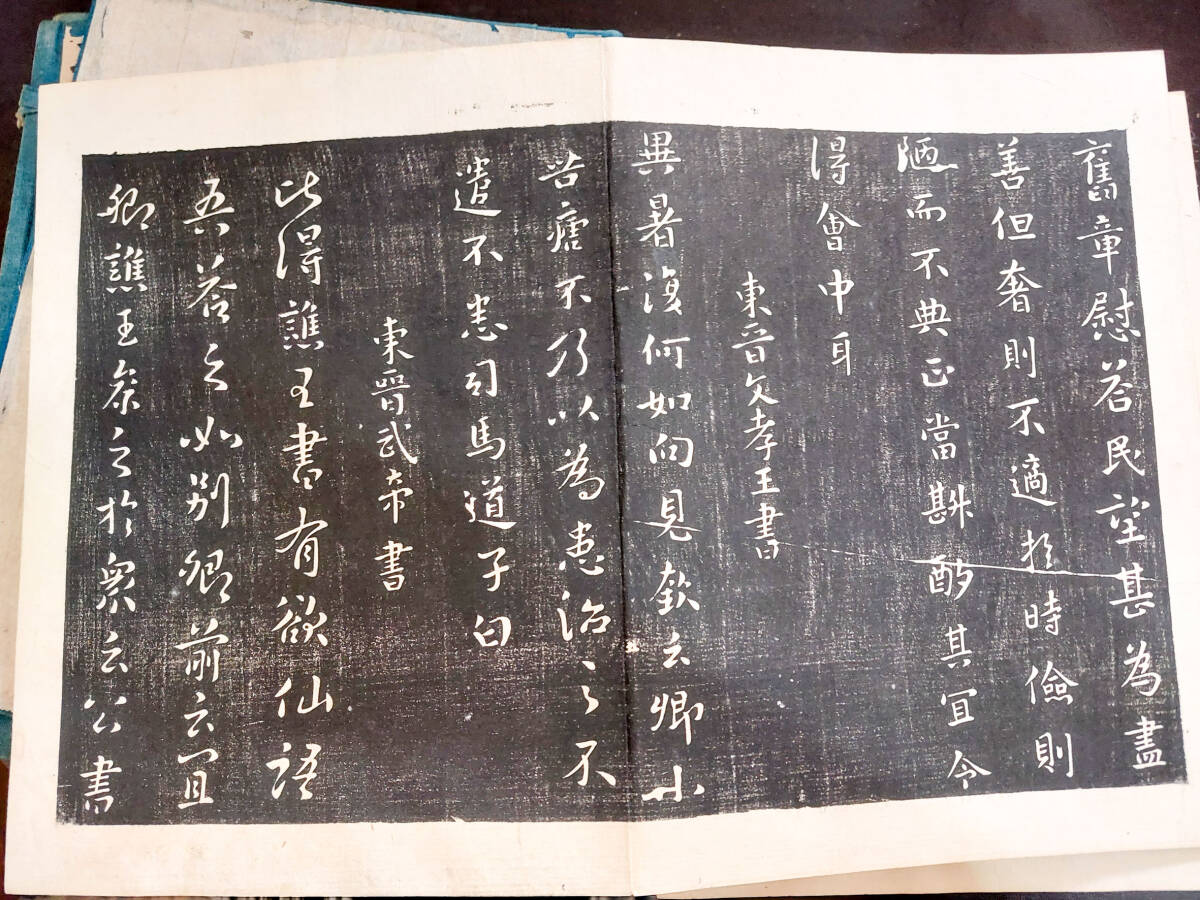 舊章慰答民望甚為盡
善但奢則不適於時儉則
陋而不典正當斟酌其宜令
得會中耳
東晉文孝王書
異暑復何如向見欽云卿小
苦瘧不乃以為患治之不
遣不悉司馬道子白
東晉武帝書
比得譙王書有欲仙語
吾答之如別卿前云宜
卿譙王參之於眾云公書